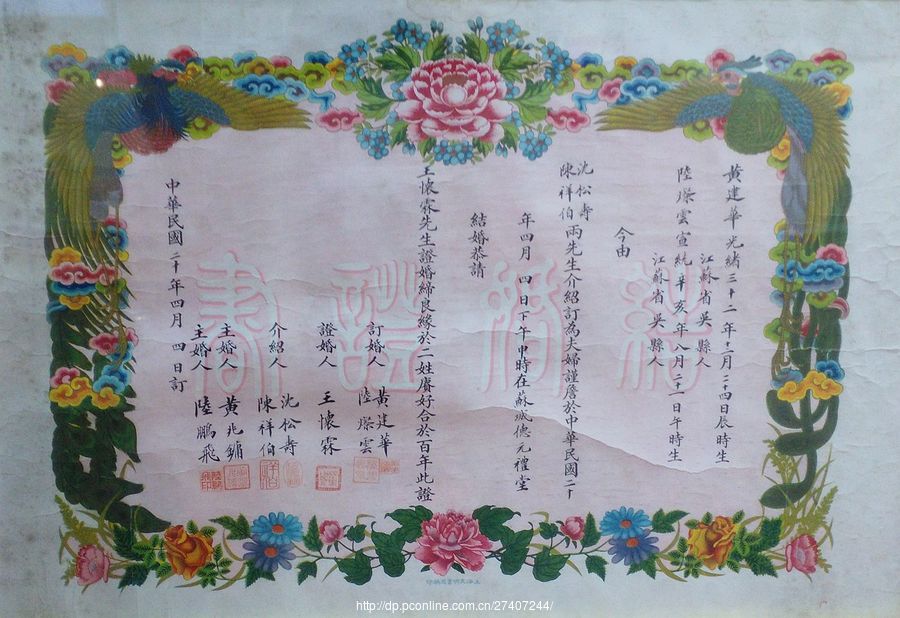 黄建華 光緒三十二年十二月二十四日辰時生
江蘇省吳縣人
陸燦雲 宣統辛亥年八月二十一日午時生
江蘇省吳縣人
今由
沈松壽
陳祥伯 兩先生介紹訂為夫婦謹詹於中華民國二十
年四月 四日下午申時在蘇城德元禮堂
結婚恭請
王懷霖先生證婚締良緣於二姓賡好合於百年此證
訂婚人 黄建華
陸燦雲
證婚人 王懷霖
介紹人 沈松壽
陳祥伯
主婚人 黄兆鏞
主婚人 陸鵬飛
中華民國二十年四月 四日訂
結婚證書
http://dp.pconline.com.cn/27407244/